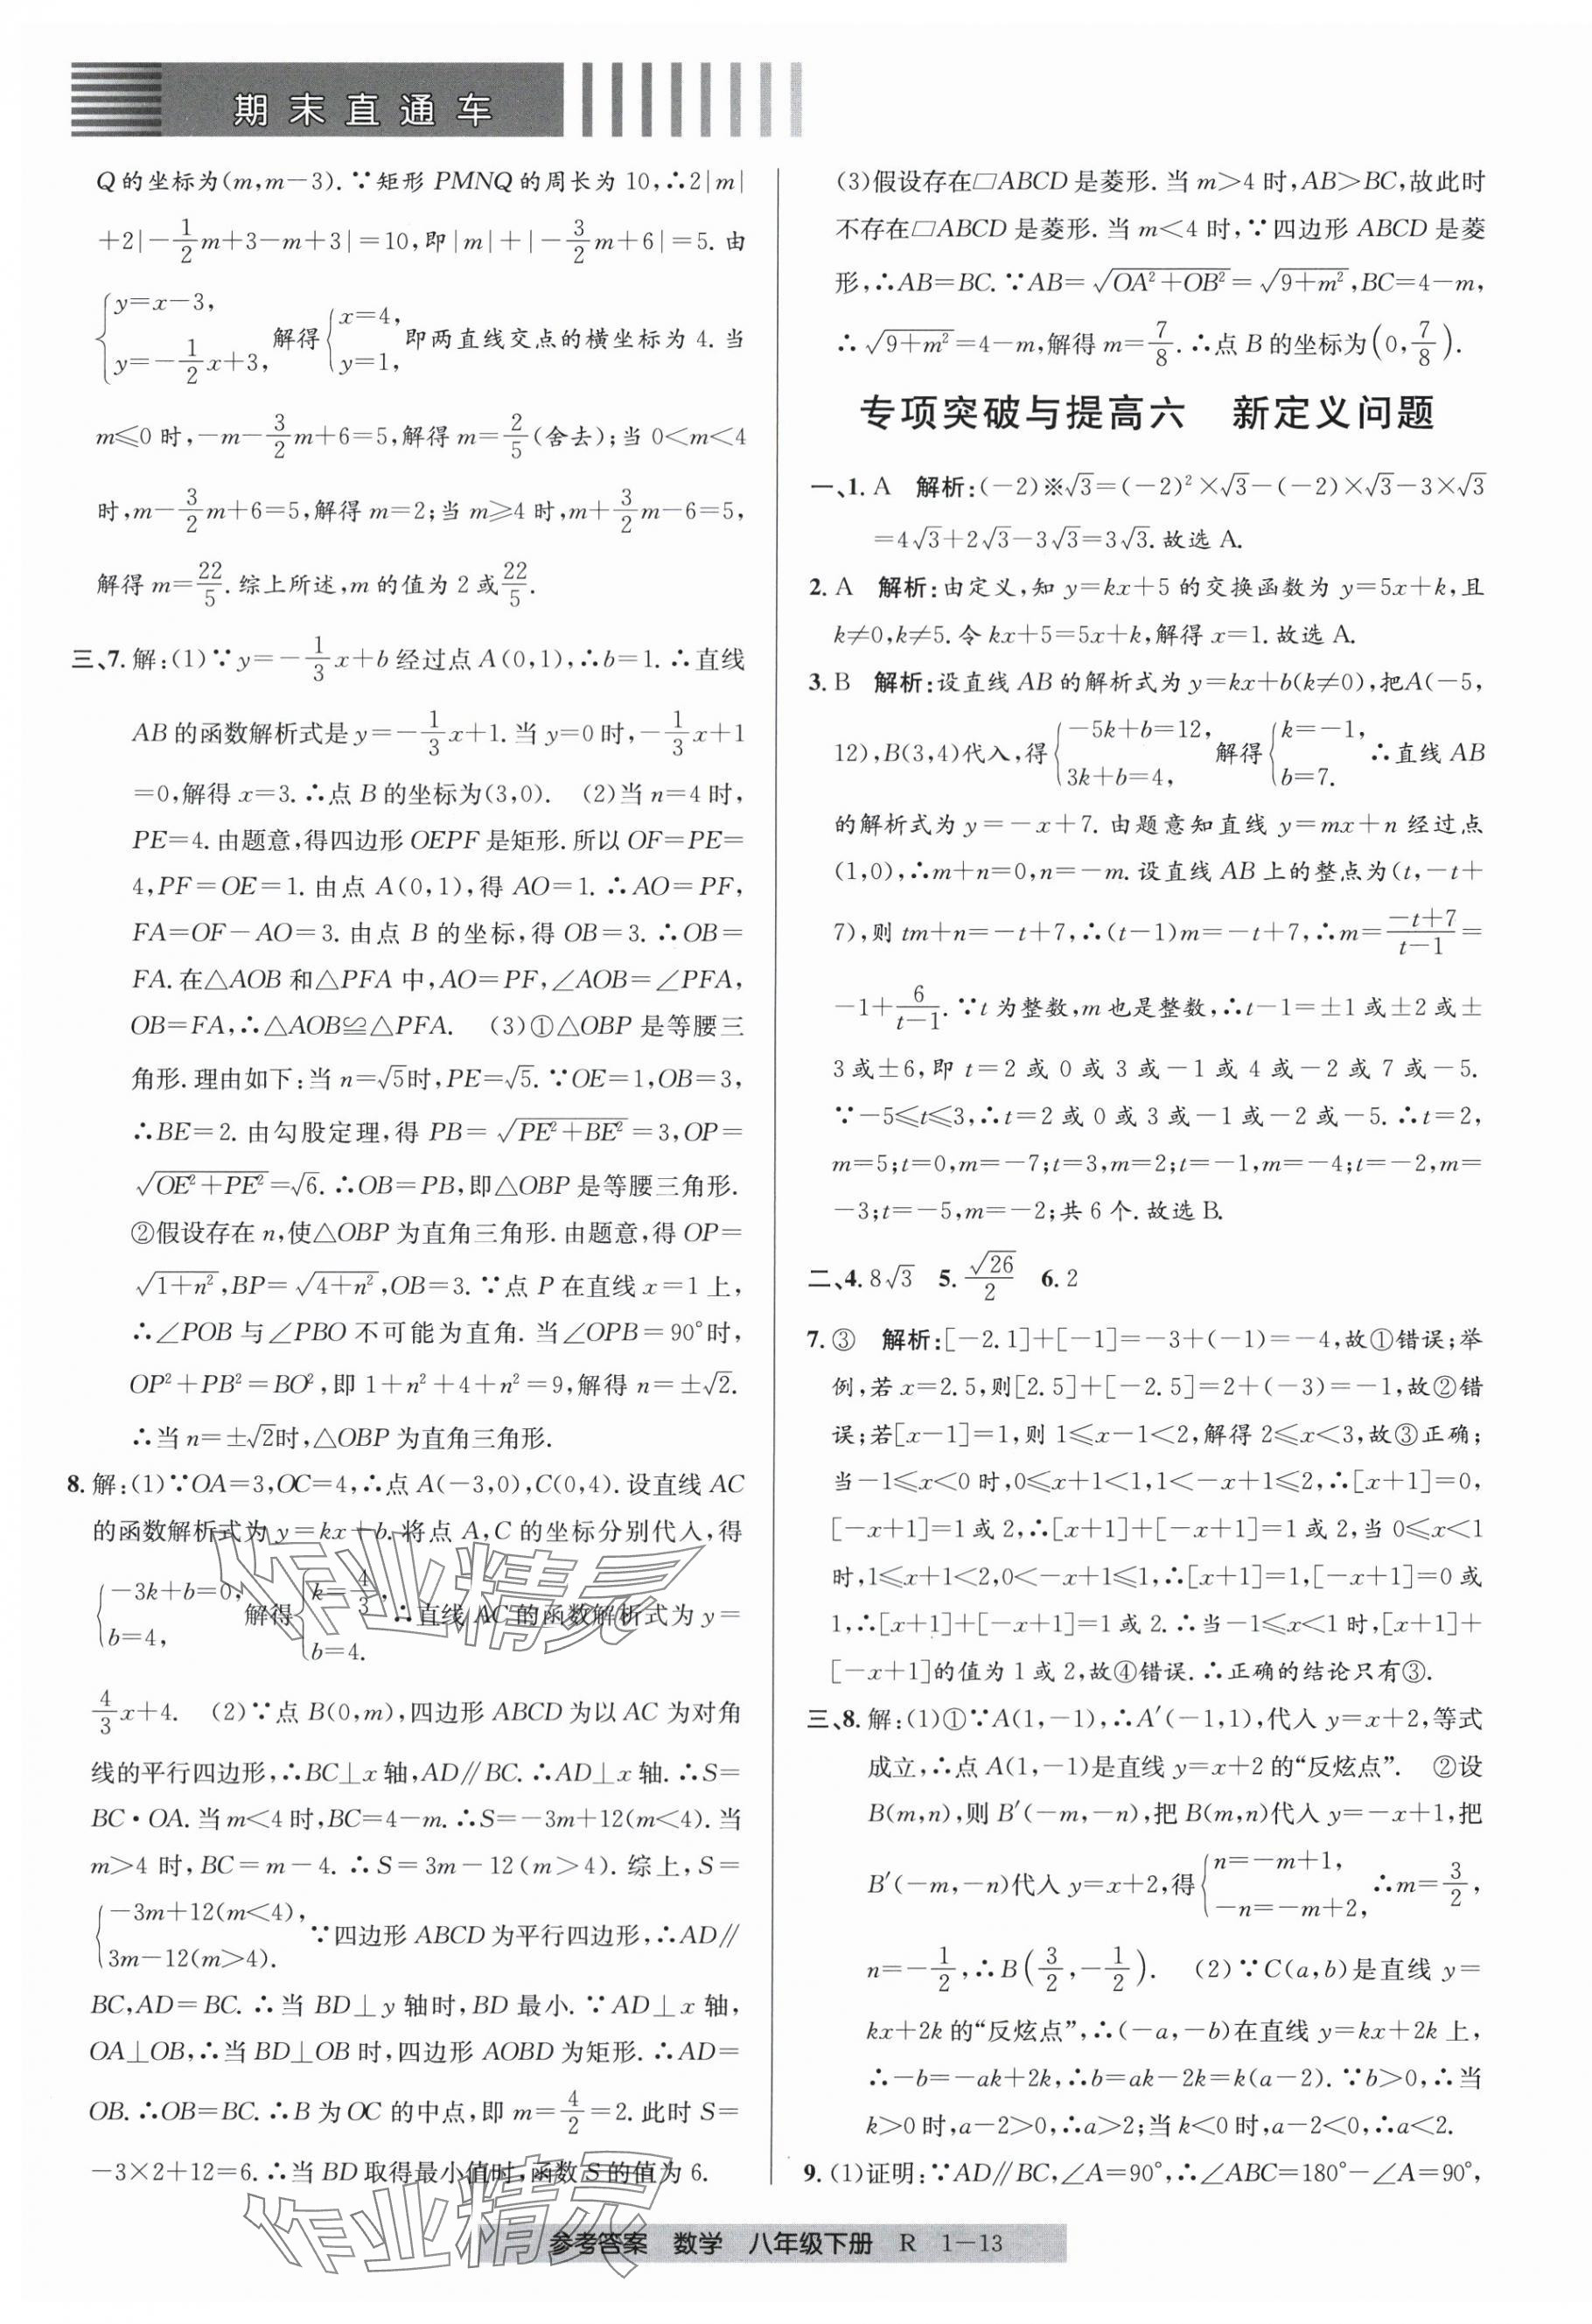 期末直通车
Q的坐标为(m,m-3).∵矩形 PMNQ 的周长为 10,∴2|m|
+2|-1/2m+3-m+3|=10,即|m|+|-3/2m+6|=5.由
{y=x-3, y=-1/2x+3, 解得{x=4, y=1, 即两直线交点的横坐标为 4.当
m≤0 时,-m-3/2m+6=5,解得 m=2/5(舍去);当 0<m<4
时,m-3/2m+6=5,解得 m=2;当 m≥4 时,m+3/2m-6=5,
解得 m=22/5.综上所述,m 的值为 2 或22/5.
三、7.解:(1)∵y=-1/3x+b 经过点 A(0,1),∴b=1.∴直线
AB 的函数解析式是 y=-1/3x+1.当 y=0 时,-1/3x+1
=0,解得 x=3.∴点 B 的坐标为(3,0). (2)当 n=4 时,
PE=4.由题意,得四边形 OEPF 是矩形.所以 OF=PE=
4,PF=OE=1.由点 A(0,1),得 AO=1.∴AO=PF,
FA=OF-AO=3.由点 B 的坐标,得 OB=3.∴OB=
FA.在△AOB 和△PFA 中,AO=PF,∠AOB=∠PFA,
OB=FA,∴△AOB≌△PFA. (3)①△OBP 是等腰三
角形.理由如下:当 n=√5时,PE=√5.∵OE=1,OB=3,
∴BE=2.由勾股定理,得 PB=√(PE²+BE²)=3,OP=
√(OE²+PE²)=√6.∴OB=PB,即△OBP 是等腰三角形.
②假设存在 n,使△OBP 为直角三角形.由题意,得 OP=
√(1+n²),BP=√(4+n²),OB=3.∵点 P 在直线 x=1 上,
∴∠POB 与∠PBO 不可能为直角.当∠OPB=90°时,
OP²+PB²=BO²,即 1+n²+4+n²=9,解得 n=±√2.
∴当 n=±√2时,△OBP 为直角三角形.
8.解:(1)∵OA=3,OC=4,∴点 A(-3,0),C(0,4).设直线 AC
的函数解析式为 y=kx+b.将点 A,C 的坐标分别代入,得
{-3k+b=0, b=4, 解得{k=4/3, b=4. ∴直线 AC 的函数解析式为 y=
4/3x+4. (2)∵点 B(0,m),四边形 ABCD 为以 AC 为对角
线的平行四边形,∴BC⊥x 轴,AD∥BC.∴AD⊥x 轴.∴S=
BC·OA.当 m<4 时,BC=4-m.∴S=-3m+12(m<4).当
m>4 时,BC=m-4.∴S=3m-12(m>4).综上,S=
{-3m+12(m<4), 3m-12(m>4). ∵四边形 ABCD 为平行四边形,∴AD∥
BC,AD=BC.∴当 BD⊥y 轴时,BD 最小.∵AD⊥x 轴,
OA⊥OB,∴当 BD⊥OB 时,四边形 AOBD 为矩形.∴AD=
OB.∴OB=BC.∴B 为 OC 的中点,即 m=4/2=2.此时 S=
-3×2+12=6.∴当 BD 取得最小值时,函数 S 的值为 6.
(3)假设存在□ABCD 是菱形.当 m>4 时,AB>BC,故此时
不存在□ABCD 是菱形.当 m<4 时,∵四边形 ABCD 是菱
形,∴AB=BC.∵AB=√(OA²+OB²)=√(9+m²),BC=4-m,
∴√(9+m²)=4-m,解得 m=7/8.∴点 B 的坐标为(0,7/8).
专项突破与提高六 新定义问题
一、1. A 解析:(-2)※√3=(-2)²×√3-(-2)×√3-3×√3
=4√3+2√3-3√3=3√3.故选 A.
2. A 解析:由定义,知 y=kx+5 的交换函数为 y=5x+k,且
k≠0,k≠5.令 kx+5=5x+k,解得 x=1.故选 A.
3. B 解析:设直线 AB 的解析式为 y=kx+b(k≠0),把A(-5,
12),B(3,4)代入,得{-5k+b=12, 3k+b=4, 解得{k=-1, b=7. ∴直线 AB
的解析式为 y=-x+7.由题意知直线 y=mx+n 经过点
(1,0),∴m+n=0,n=-m.设直线 AB 上的整点为(t,-t+
7),则 tm+n=-t+7,∴(t-1)m=-t+7,∴m=(-t+7)/(t-1)=
-1+6/(t-1).∵t 为整数,m 也是整数,∴t-1=±1 或±2 或±
3 或±6,即 t=2 或 0 或 3 或-1 或 4 或-2 或 7 或-5.
∵-5≤t≤3,∴t=2 或 0 或 3 或-1 或-2 或-5.∴t=2,
m=5;t=0,m=-7;t=3,m=2;t=-1,m=-4;t=-2,m=
-3;t=-5,m=-2;共 6 个.故选 B.
二、4. 8√3 5. √26/2 6. 2
7. ③ 解析:[-2.1]+[-1]=-3+(-1)=-4,故①错误;举
例,若 x=2.5,则[2.5]+[-2.5]=2+(-3)=-1,故②错
误;若[x-1]=1,则 1≤x-1<2,解得 2≤x<3,故③正确;
当-1≤x<0 时,0≤x+1<1,1<-x+1≤2,∴[x+1]=0,
[-x+1]=1或 2,∴[x+1]+[-x+1]=1或 2,当 0≤x<1
时,1≤x+1<2,0<-x+1≤1,∴[x+1]=1,[-x+1]=0或
1,∴[x+1]+[-x+1]=1 或 2.∴当-1≤x<1 时,[x+1]+
[-x+1]的值为 1 或 2,故④错误.∴正确的结论只有③.
三、8.解:(1)①∵A(1,-1),∴A′(-1,1),代入 y=x+2,等式
成立,∴点 A(1,-1)是直线 y=x+2 的“反炫点”. ②设
B(m,n),则 B′(-m,-n),把 B(m,n)代入 y=-x+1,把
B′(-m,-n)代入 y=x+2,得{n=-m+1, -n=-m+2, ∴m=3/2,
n=-1/2,∴B(3/2,-1/2). (2)∵C(a,b)是直线 y=
kx+2k 的“反炫点”,∴(-a,-b)在直线 y=kx+2k 上,
∴-b=-ak+2k,∴b=ak-2k=k(a-2).∵b>0,∴当
k>0 时,a-2>0,∴a>2;当 k<0 时,a-2<0,∴a<2.
9.(1)证明:∵AD∥BC,∠A=90°,∴∠ABC=180°-∠A=90°,
作业精灵
作业精灵
参考答案 数学 八年级下册 R 1—13